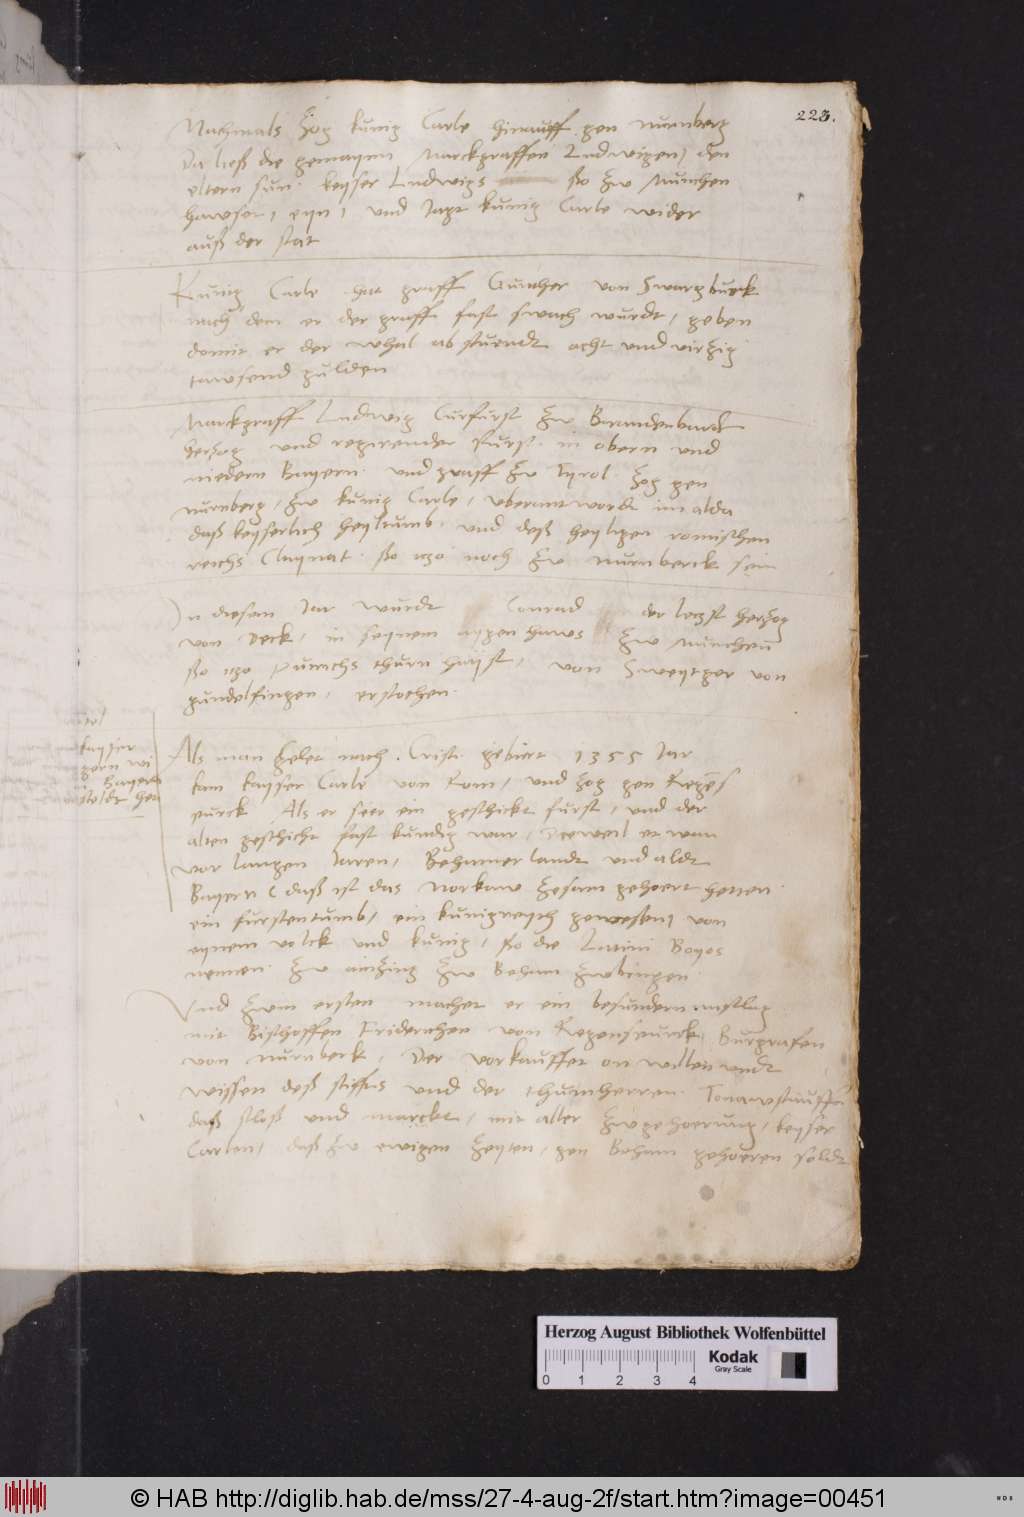 223.
Nachmals zog kunig Carle hinauff gen nurnberg
Da ließ die gemaynn Marckgraffen Ludwigen den
eltern sun keyser Ludwigs ßo zw Munchen
hawset, eyn, und Jagt kunig Carle wider
auß der stat
Kunig Carle hat graff Gunther von Swarzburck
nach dem er der graff fast swach wurdt, geben
domit er der whal ab stuendt acht und virzig
tawsend gulden
Marckgraff Ludwig Curfurst zw Brandenburck
herzog und regirender furst in obern und
niedern Bayern und graff zw Tyrol zog gen
nurnberg, zw kunig Carle, uberantwordt im alda
daß keyserlich heyltumb, und deß heyligen romischen
reichs Claynat ßo izo noch zw nurnberck sein
In diesem Jar wurdt Conrad der letzst herzog
von Deck, in seynem aygen haws zw Munchen
ßo izo purichs thurn hayst, von Sweytzger von
gundelfingen, erstochen
kayser
gern wi
Bayern
Als man zelet nach Cristi geburt 1355 Jar
kam kayser Carle von Rom, und zog gen Regens
purck Als er seer ein geschickt furst, und der
alten geschicht fast kundig war, Dieweil etwan
vor langen Jaren, Behamer landt und aldt
Bayern (daß ist das Norkaw zesam gehoert hetten
ein furstentumb, ein kunigreych gewesen, von
eynem volck und kunig, ßo die Latini Boyos
nennen zw ainzing zw Beham zwbringen
Und zwm ersten machet er ein besundern anslag
mit Bischoffen Friderichen von Regenspurck, Burgrafen
von nurnberck, Der vorkauffet on willen undt
wissen deß stiffts und der thumherren Tonawstauffen
daß sloß und marckt, mit aller zwgehoerung, keyser
Carlen, daß zw ewigen zeyten, gen Beham gehoeren soldt
Herzog August Bibliothek Wolfenbüttel
Kodak
Gray Scale
0 1 2 3 4
© HAB http://diglib.hab.de/mss/27-4-aug-2f/start.htm?image=00451